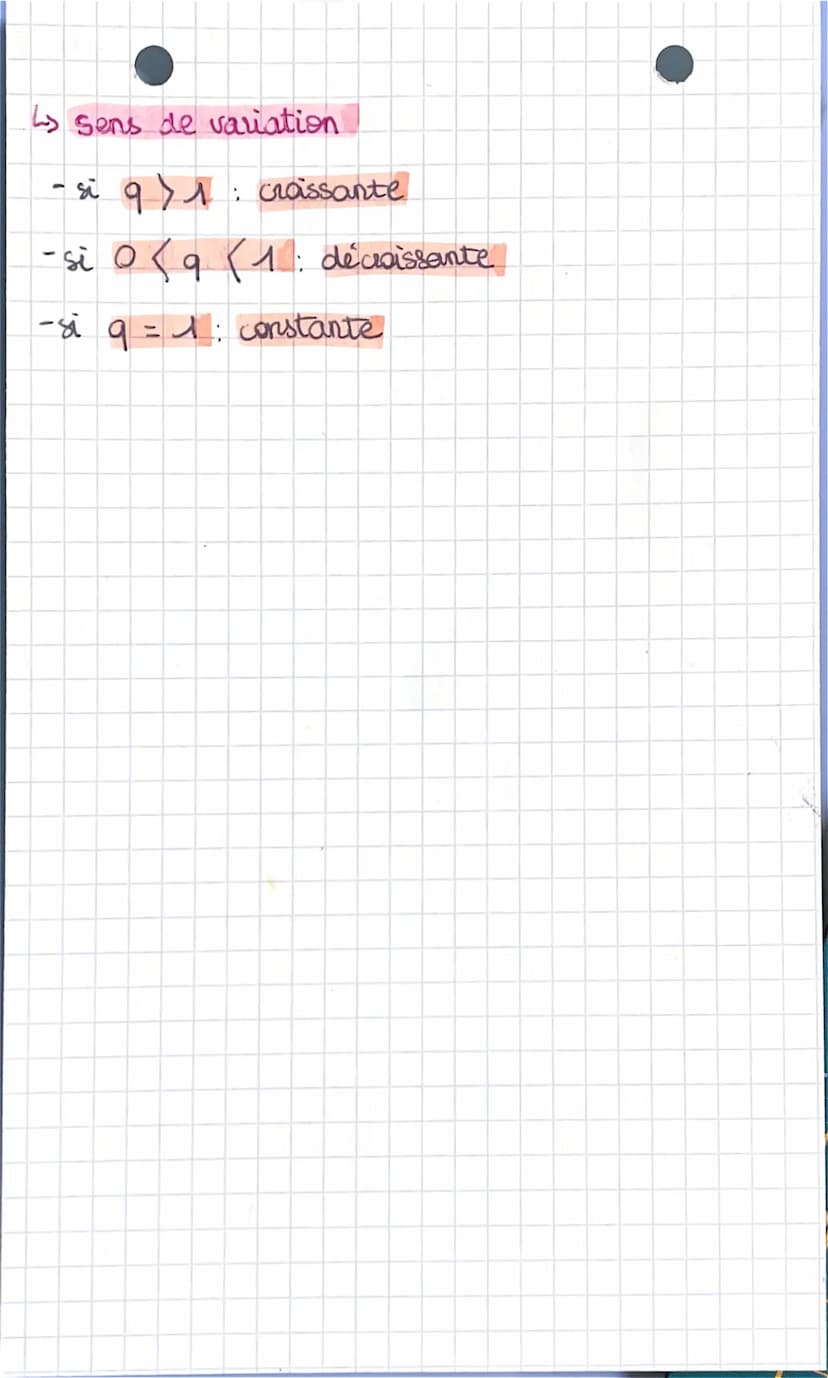 ↳ sens de variation
- si q > 1 : croissante
- si 0 < q < 1 : décroissante
- si q = 1 : constante